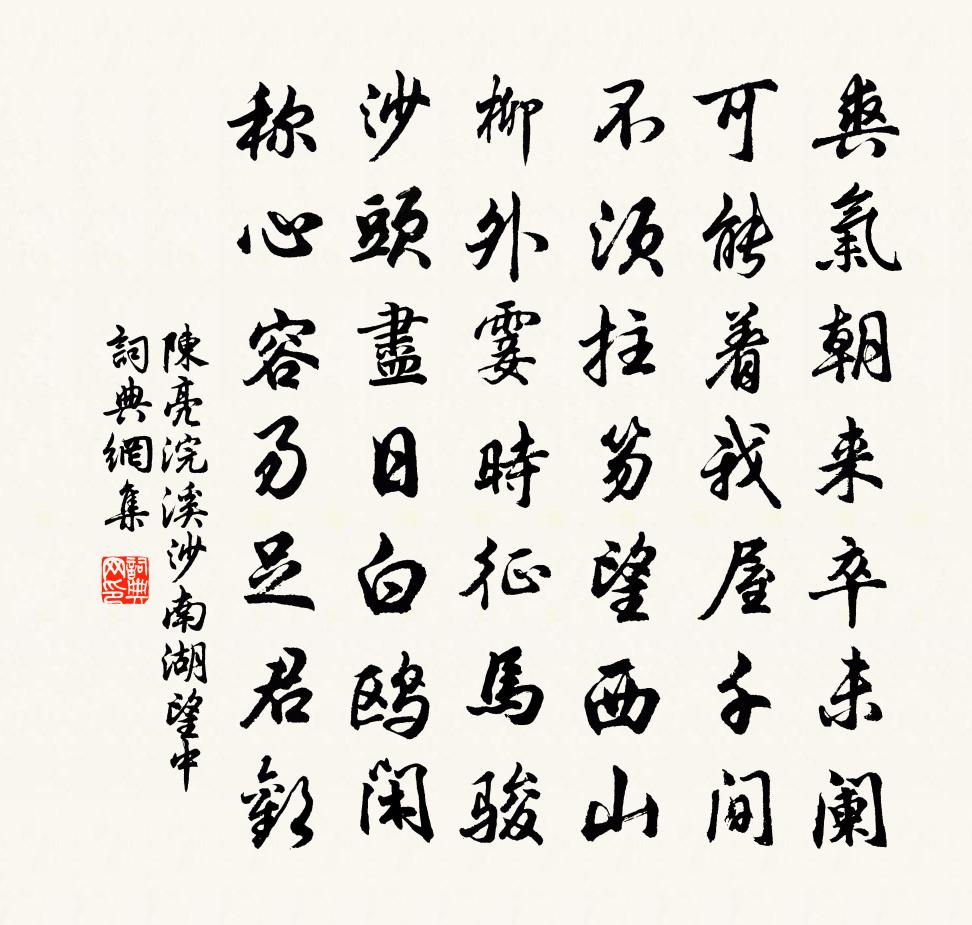 爽氣朝来卒未阑
可能着我屋千间
不須拄笏望西山
柳外霎時征馬骏
沙頭盡日白鸥闲
称心容易足君歡
陳亮浣溪沙南湖望中
詞典網集
詞典网印